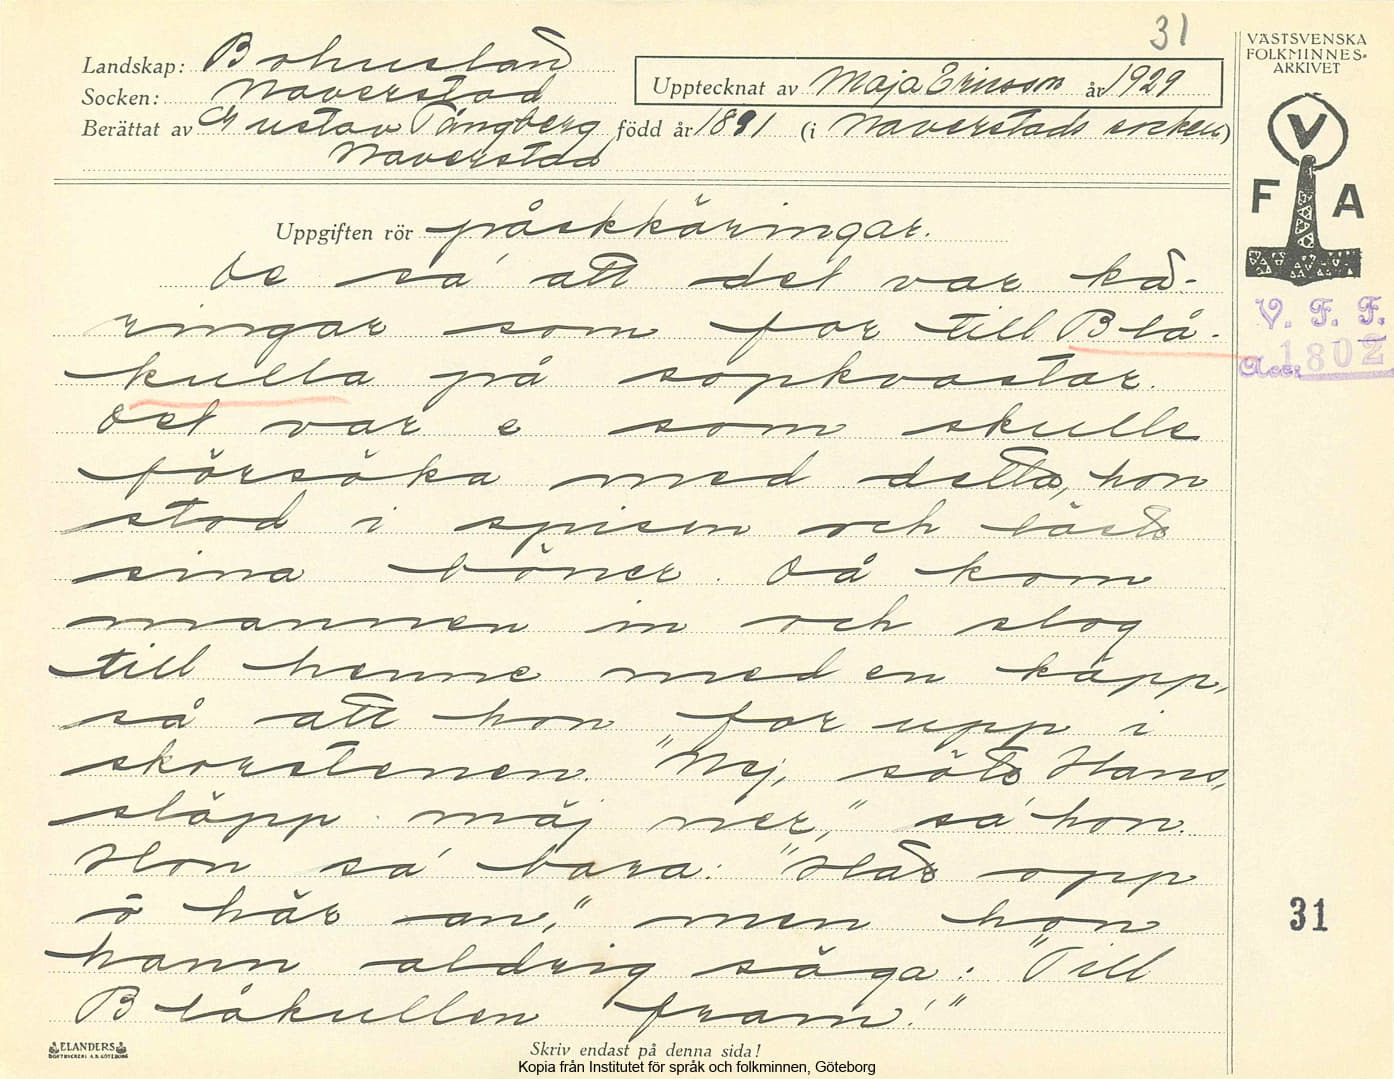 31
Landskap: Bohuslän
Socken: Naverstad
Upptecknat av Maja Ericson år 1929
Berättat av Gustav Tångberg född år 1891 (i Naverstads socken)
Naverstad
VÄSTSVENSKA
FOLKMINNES-
ARKIVET
V
F A
V. F. F.
Acc. 1802
Uppgiften rör påskkäringar.
De sa' att det var kä-
ringar som for till Blå-
kulla på sopkvastar.
Det var e som skulle
försöka med detta, hon
stod i spisen och läste
sina böner. Då kom
mannen in och slog
till henne med en käpp,
så att hon for upp i
skorstenen. "Nej, söte Hans,
släpp mäj ner," sa' hon.
Hon sa' bara: "Här opp
ö här an," men hon
hann aldrig säga: "Till
Blåkullen fram!"
31
ELANDERS
BOKTRYCKERI A.B. GÖTEBORG
Skriv endast på denna sida!
Kopia från Institutet för språk och folkminnen, Göteborg